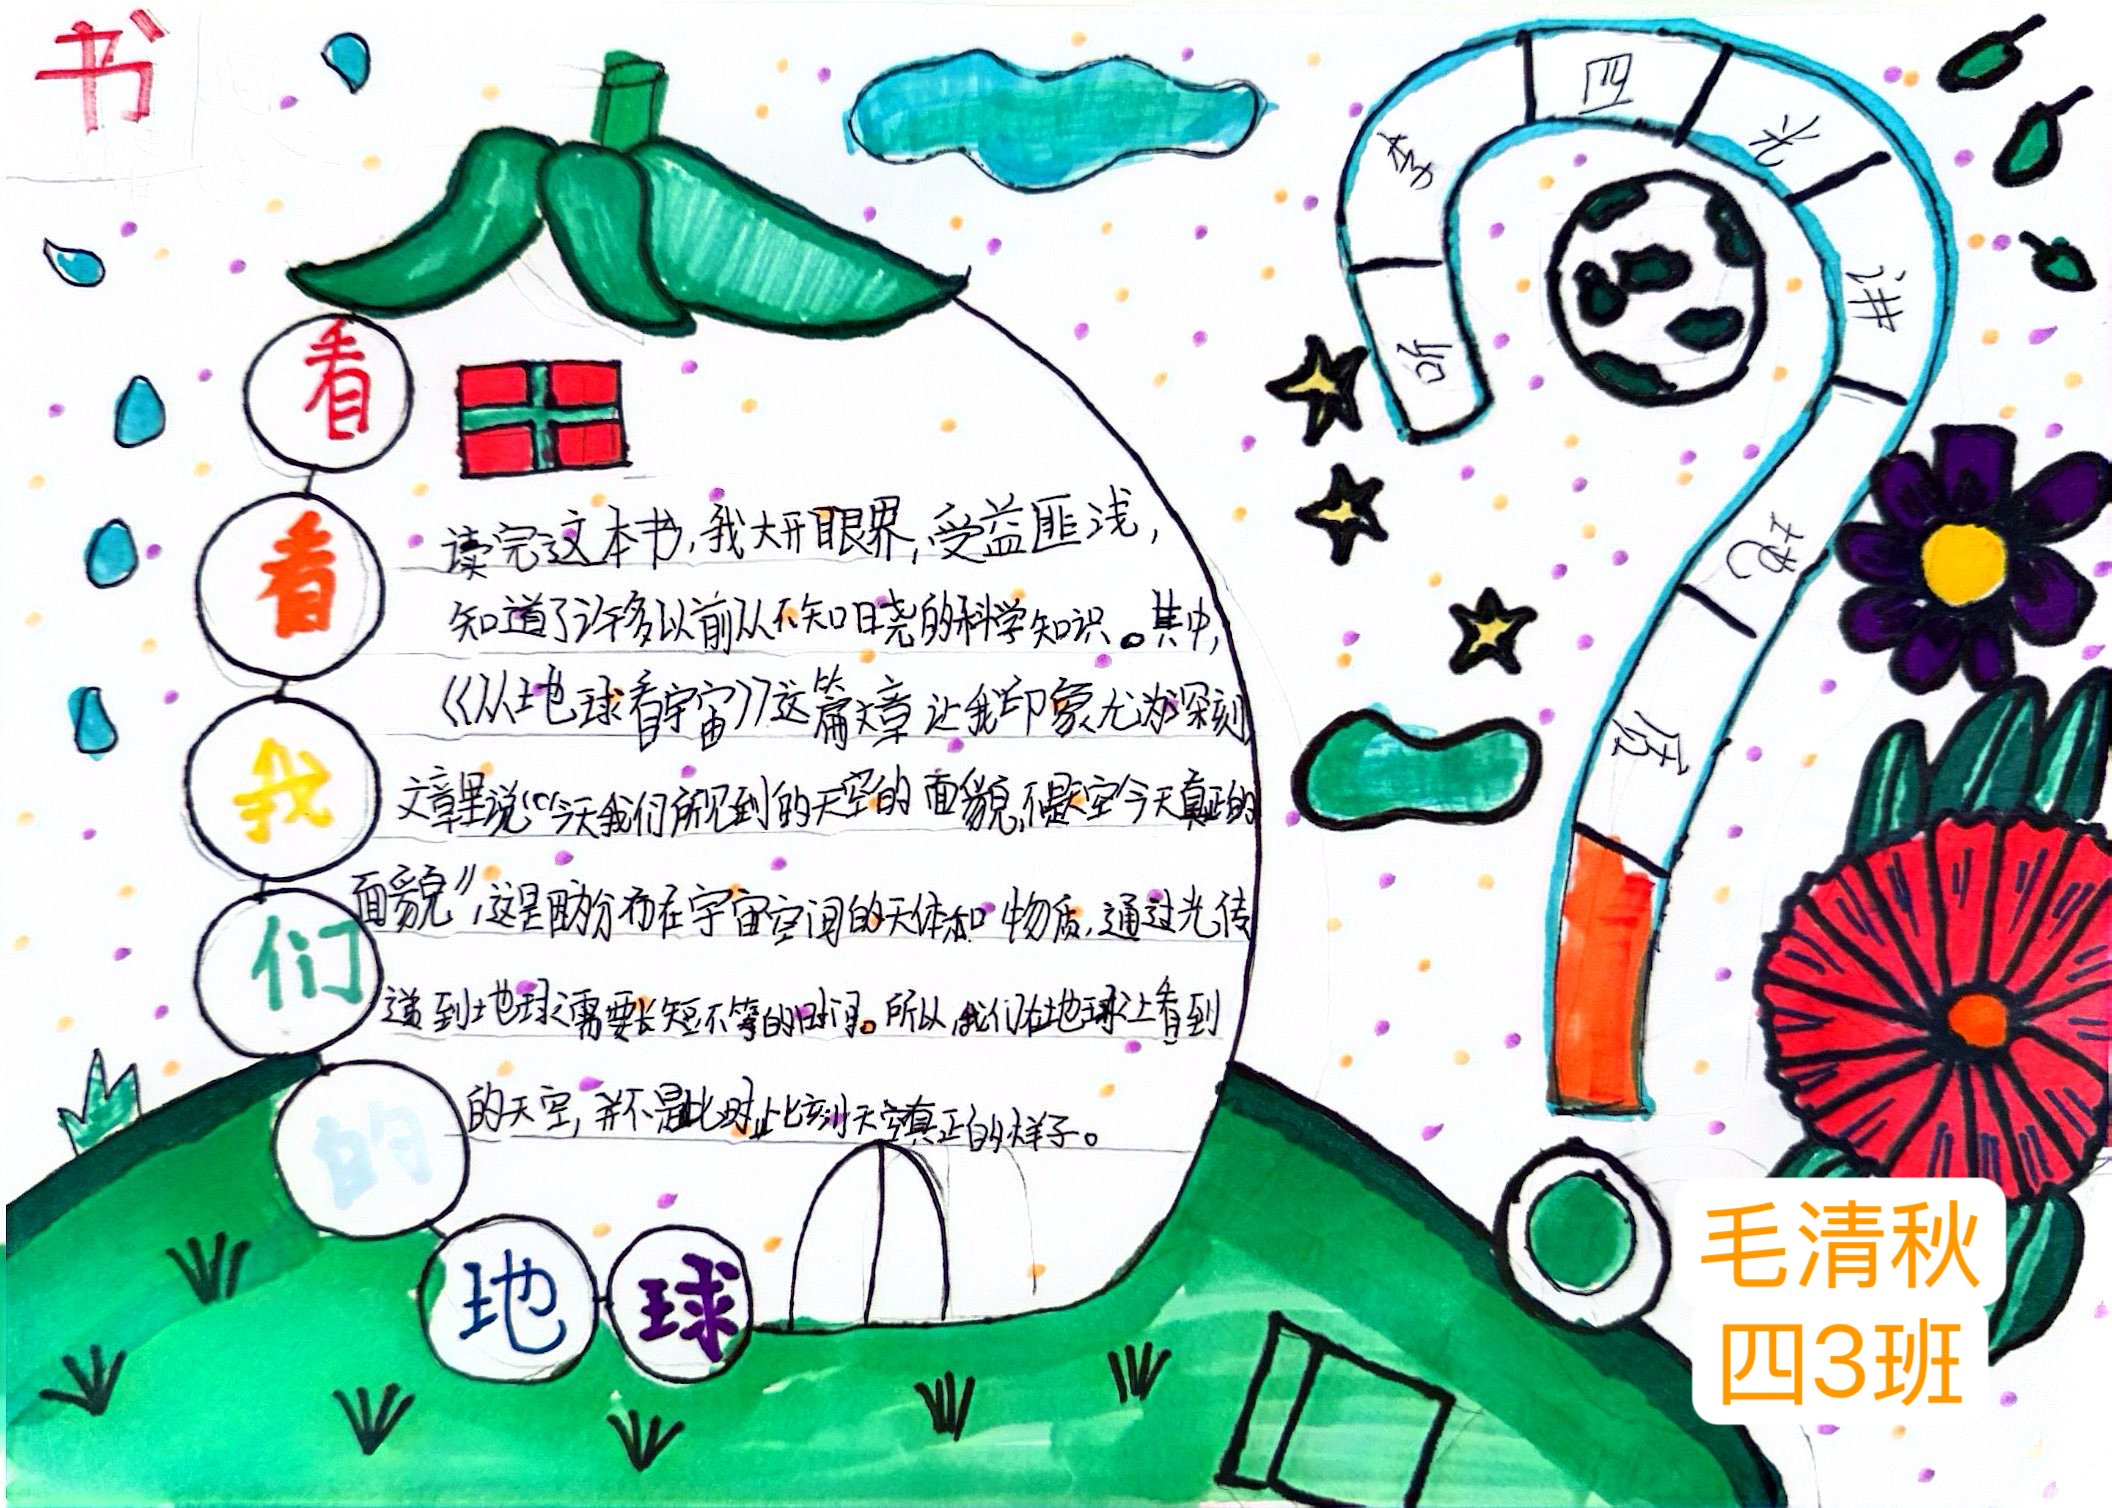 书
看
看
我
们
的
地
球
读完这本书,我大开眼界,受益匪浅,
知道了许多以前从不知日晓的科学知识。其中,
《从地球看宇宙》这篇文章让我印象尤为深刻
文章里说“今天我们所见到的天空的面貌,不是天空今天真正的
面貌”,这是因为分布在宇宙空间的天体和物质,通过光传
送到地球之需要长短不等的时间。所以,我们在地球上看到
的天空,并不是此时此刻天空真正的样子。
李
四
光
讲
地
质
毛清秋
四3班